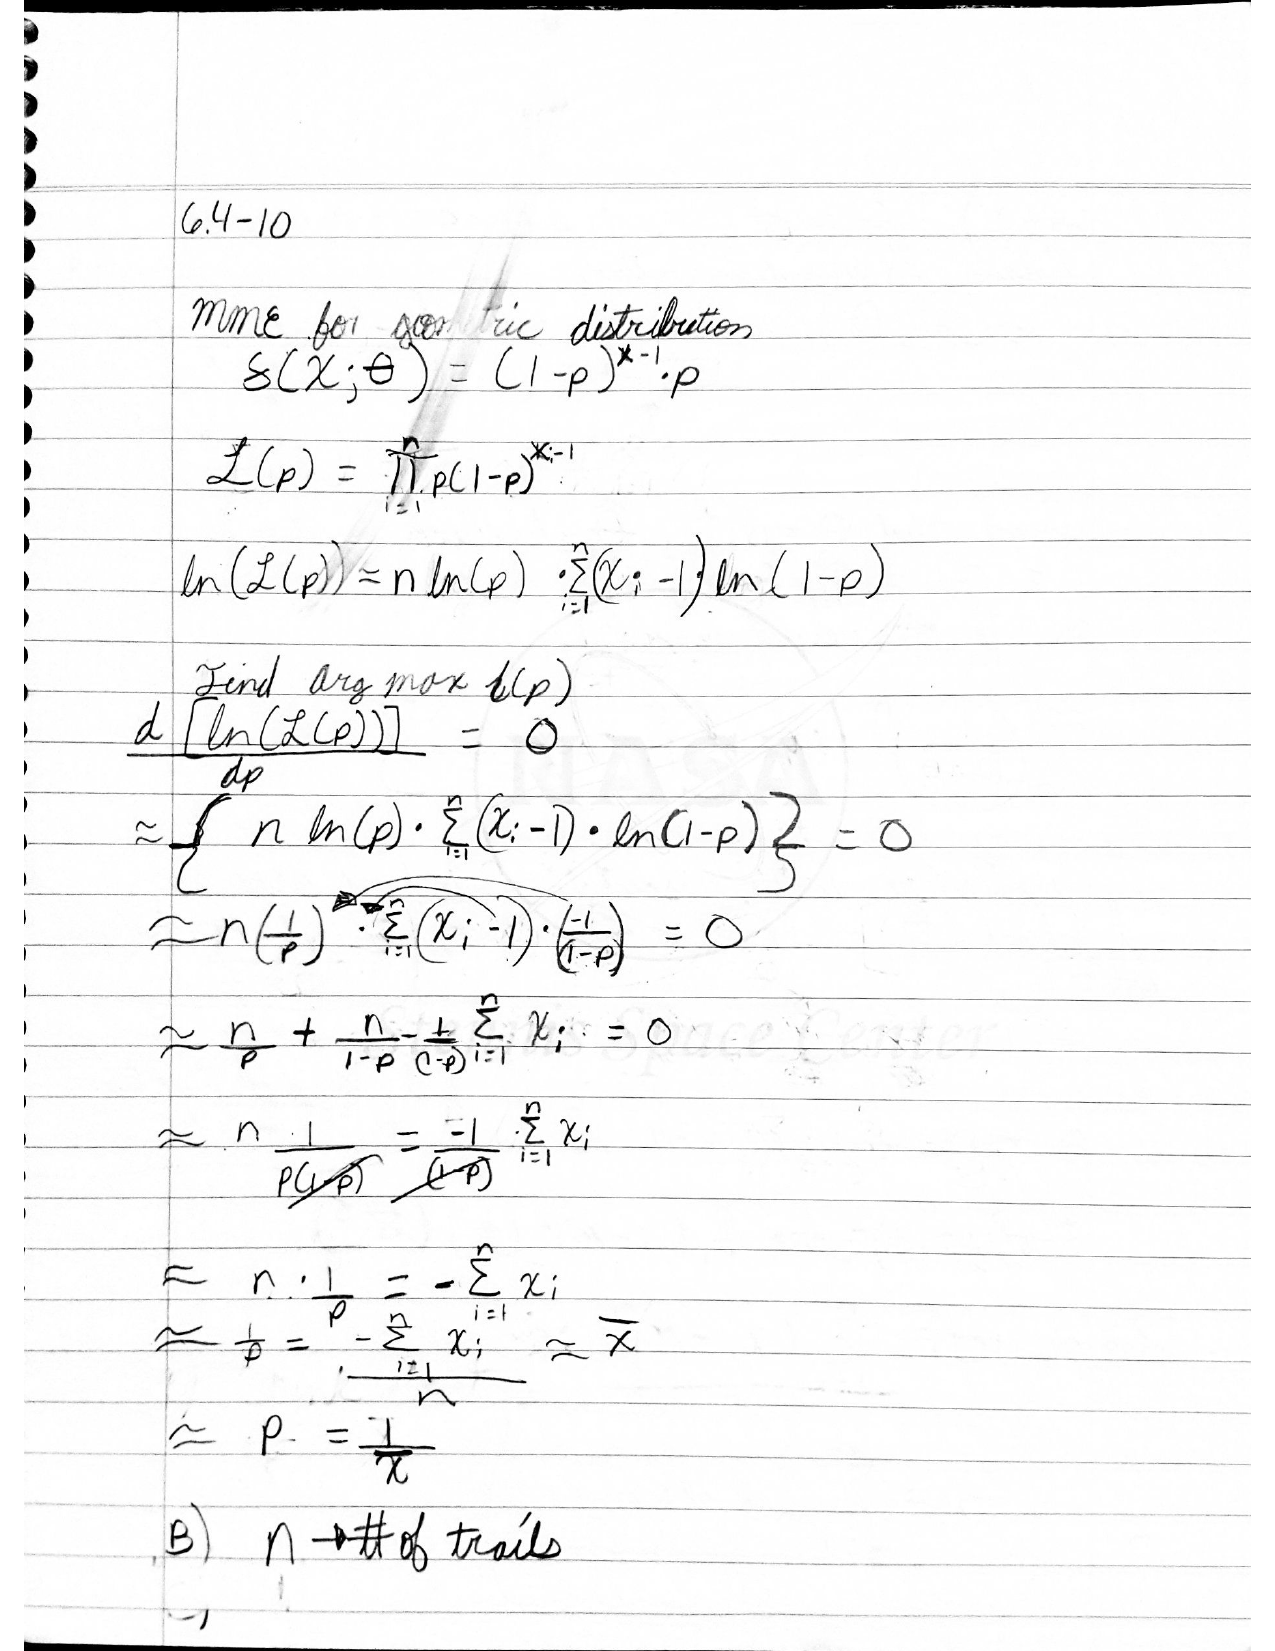 6.4-10
MME for geometric distribution
f(x;θ) = (1-p)^{x-1}·p
ℒ(p) = ∏_{i=1}^{n} p(1-p)^{x_i-1}
ln(ℒ(p)) ≈ n ln(p) · Σ_{i=1}^{n}(x_i-1) ln(1-p)
Find arg max ℓ(p)
d [ln(ℒ(p))] / dp = 0
≈ { n ln(p) · Σ_{i=1}^{n}(x_i-1) · ln(1-p) } = 0
≈ n(1/p) · Σ_{i=1}^{n}(x_i-1) · (-1/(1-p)) = 0
≈ n/p + n/(1-p) - 1/(1-p) Σ_{i=1}^{n} x_i = 0
≈ n 1/(p(1-p)) = -1/(1-p) · Σ_{i=1}^{n} x_i
≈ n · 1/p = - Σ_{i=1}^{n} x_i
≈ 1/p = -Σ_{i=1}^{n} x_i / n ≈ x̄
≈ p = 1/x̄
B) n → # of trails